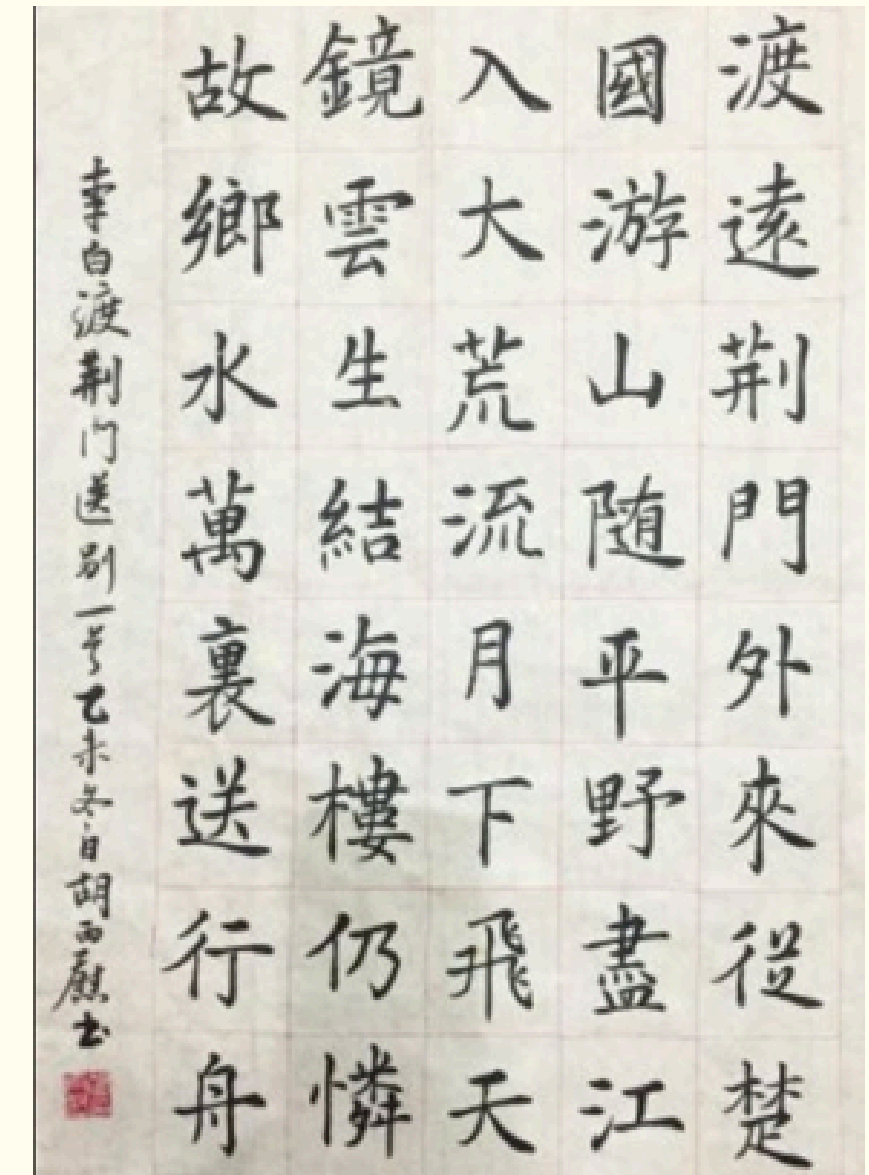 渡遠荆門外來從楚
國游山随平野盡江
入大荒流月下飛天
鏡雲生結海樓仍憐
故鄉水萬裏送行舟
李白渡荆門送别一首乙未冬日胡西⁠書